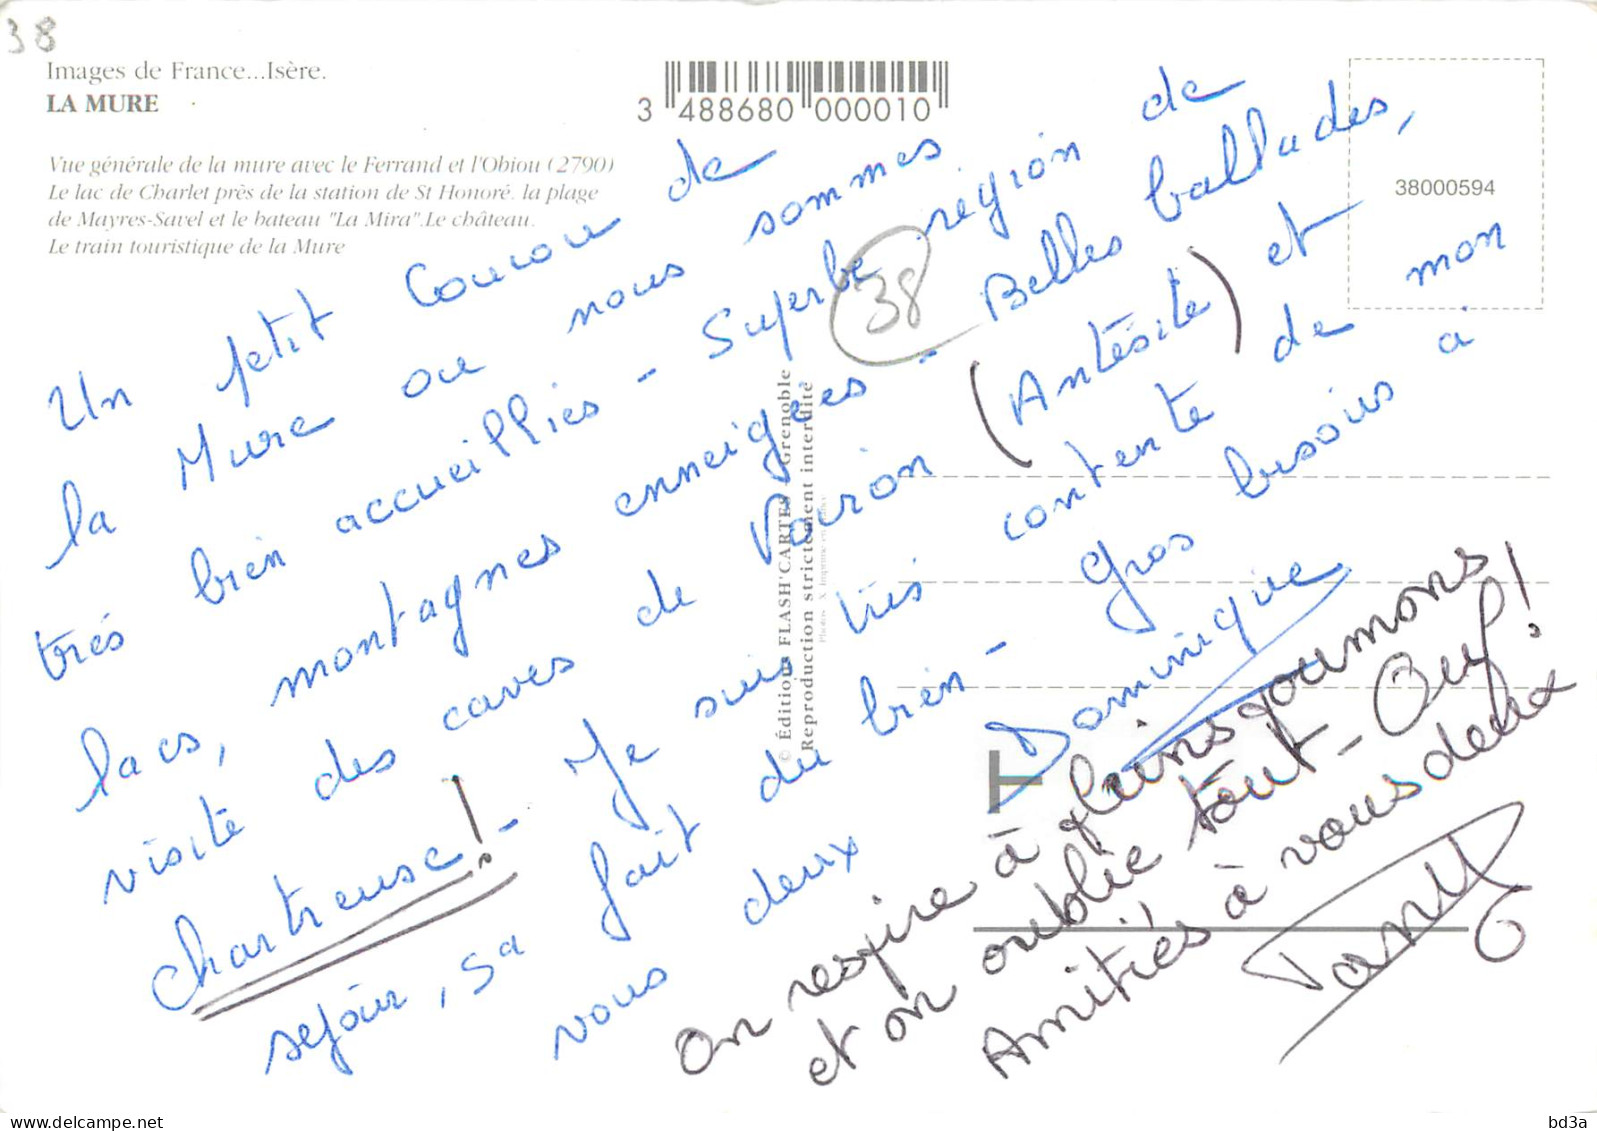 38
Images de France...Isère.
LA MURE
Vue générale de la mure avec le Ferrand et l'Obiou (2790)
Le lac de Charlet près de la station de St Honoré. la plage
de Mayres-Savel et le bateau "La Mira".Le château.
Le train touristique de la Mure
3 488680 000010
38000594
38
© Éditions FLASH'CARTES - Grenoble
Reproduction strictement interdite
Un petit Coucou de
la Mure ou nous sommes
très bien accueillies - Superbe région de de
lacs, montagnes enneigées - Belles ballades,
visite des caves de Voiron (Antésite) et
chartreuse! - Je suis très contente de mon
séjour, sa fait du bien - Gros bisous à
vous deux
Dominique
On respire à pleins poumons
et on oublie tout - Ouf!
Amitiés à vous deux
Dany
delcampe.net
bd3a